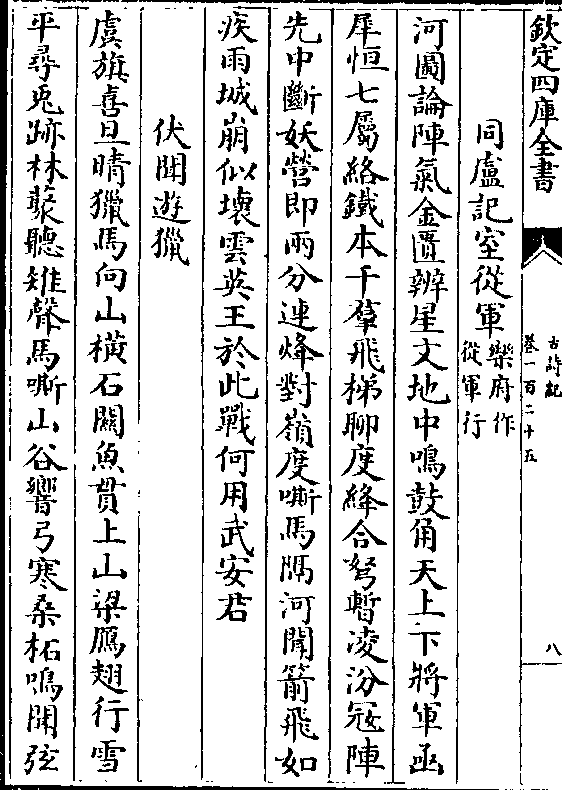 欽定四庫全書
古詩紀
卷一百二十五
八
同盧記室從軍樂府作從軍行
河圖論陣氣金匱辨星文地中鳴鼓角天上下將軍函
犀恒七屬絡鐵本千羣飛梯聊度絳合弩暫凌汾寇陣
先中斷妖營即兩分連烽對嶺度嘶馬隔河聞箭飛如
疾雨城崩似壞雲英王於此戰何用武安君
伏聞遊獵
虞旗喜旦晴獵馬向山橫石關魚貫上山梁鴈翅行雪
平尋兎跡林藂聽雉聲馬嘶山谷響弓寒桑柘鳴聞弦